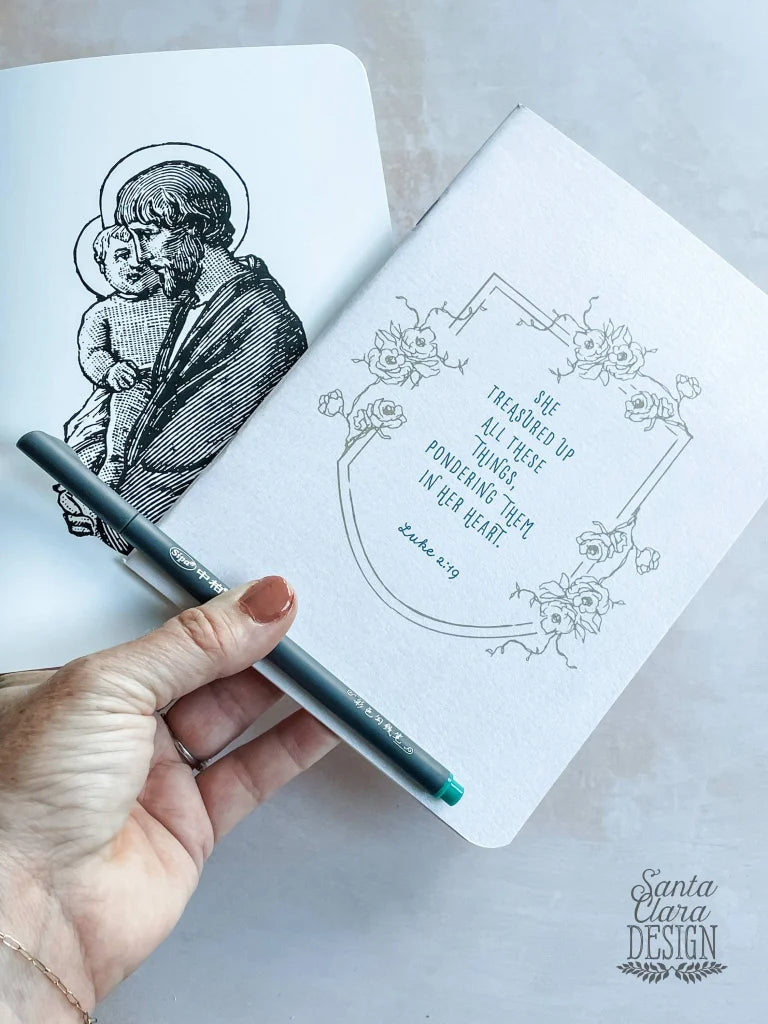 SHE
TREASURED UP
ALL THESE
THINGS,
PONDERING THEM
IN HER HEART.
Luke 2:19
Sipa® 中柏
彩色勾线笔
Santa
Clara
DESIGN